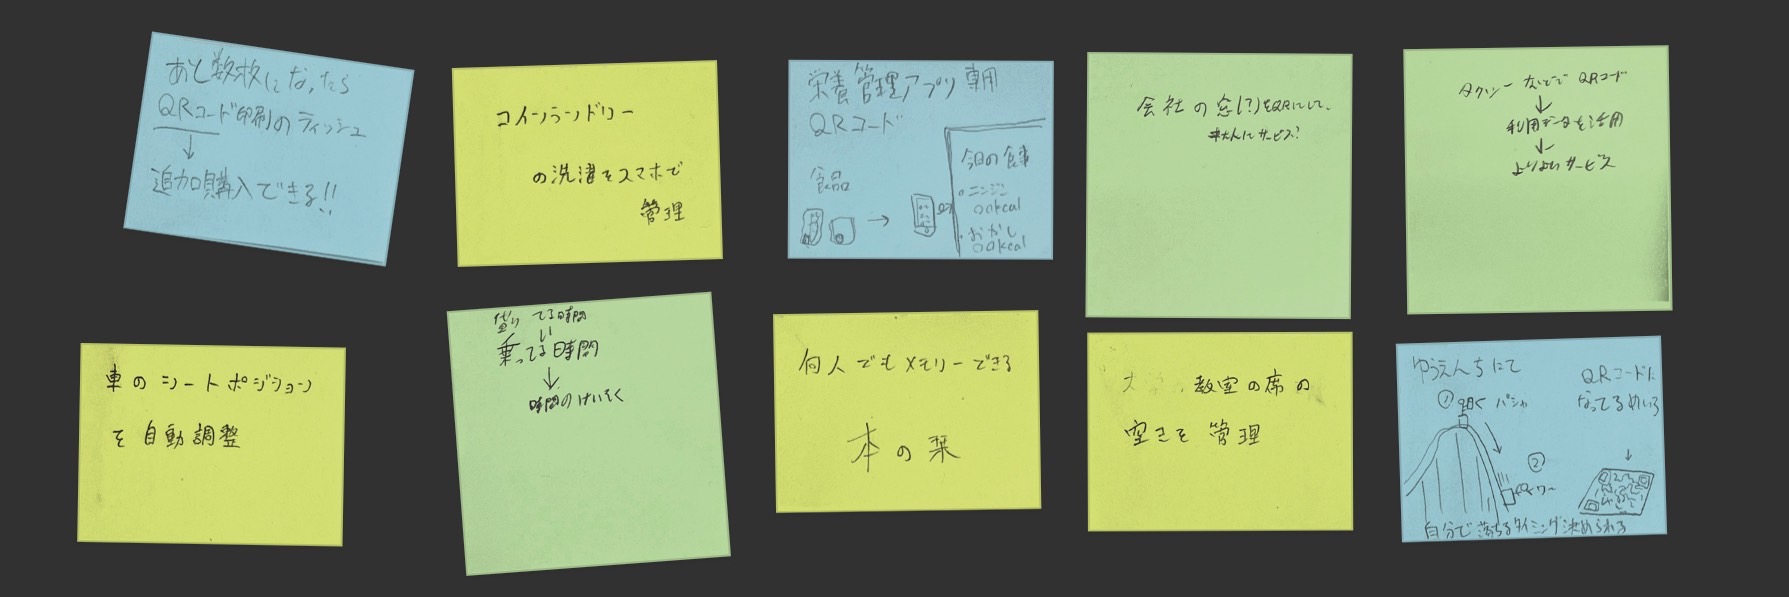 あと数枚になったら
QRコード印刷のティッシュ
↓
追加購入できる!!
コインランドリー
の洗濯をスマホで
管理
栄養管理アプリ専用
QRコード
食品
→
今日の食事
・ニンジン
○○kcal
・おかし
○○kcal
会社の窓(?)をQRにして、
来た人にサービス?
タクシーなどで QRコード
↓
利用データを活用
↓
よりよいサービス
車のシートポジション
を自動調整
借りてる時間
乗ってる時間
↓
時間のけいそく
何人でもメモリーできる
本の栞
教室の席の
空きを管理
ゆうえんちにて
① パシャ
②
自分で落ちるタイミング決められる
QRコードに
なってるめいろ
↓